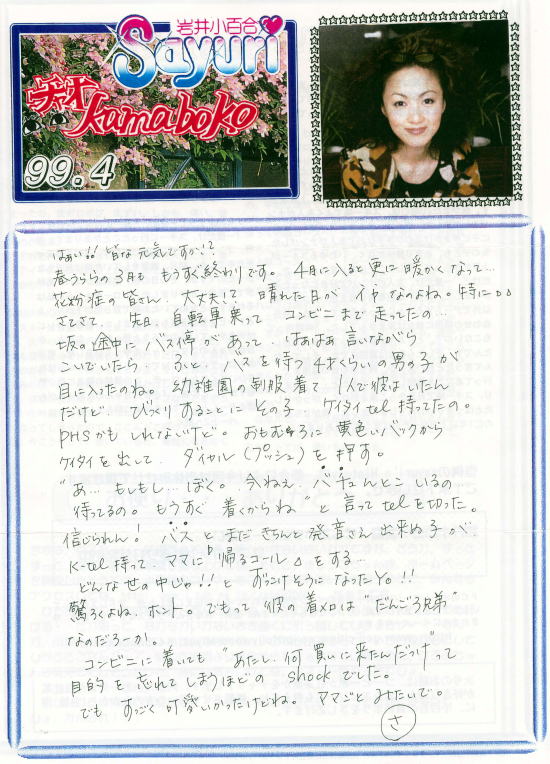 岩井小百合
Sayuri
チャオ
kamaboko
99.4
はぁい!! 皆な元気ですか!?
春うららの3月も もうすぐ終わりです。 4月に入ると更に暖かくなって…
花粉症の皆さん、大丈夫!? 晴れた日が イヤなのよね。特に
さてさて、 先日、自転車乗って コンビニまで走ってたの…
坂の途中に バス停があって、はあはあ 言いながら
こいでいたら、ふと、バスを待つ 4才くらいの男の子が
目に入ったのね。幼稚園の制服着て 1人で彼はいたん
だけど、びっくりすることに その子、ケイタイtel 持ってたの。
PHSかも しれないけど。おもむろに 黄色いバックから
ケイタイを出して、ダイヤル(プッシュ)を押す。
“あ… もしもし… ぼく。今ねえ、バチュんとこ いるの
待ってるの。もうすぐ 着くからね”と 言って telを切った。
信じられん! バスと まだ きちんと 発音さえ出来ぬ子が、
K-tel持って、ママに「帰るコール」をする…
どんな世の中じゃ!! と ずっこけそうになったY。!!
驚ろくよね、ホント。でもって 彼の着メロは “だんご3兄弟”
なのだろーか。
コンビニに着いても “あたし、何買いに来たんだっけ”って
目的を忘れてしまうほどの shock でした。
でも すっごく可愛いかったけどね。ママごとみたいで。
さ